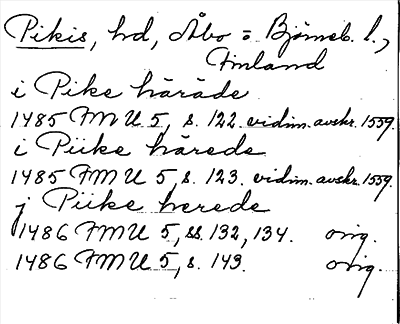 Pikis, hd, Åbo = Björneb. l.,
Finland
i Pike häräde
1485 FMU 5, s. 122. vidim. avskr. 1559.
i Piike härede
1485 FMU 5 s. 123. vidim. avskr. 1559.
j Piike herede
1486 FMU 5, ss. 132, 134. orig.
1486 FMU 5, s. 143. orig.